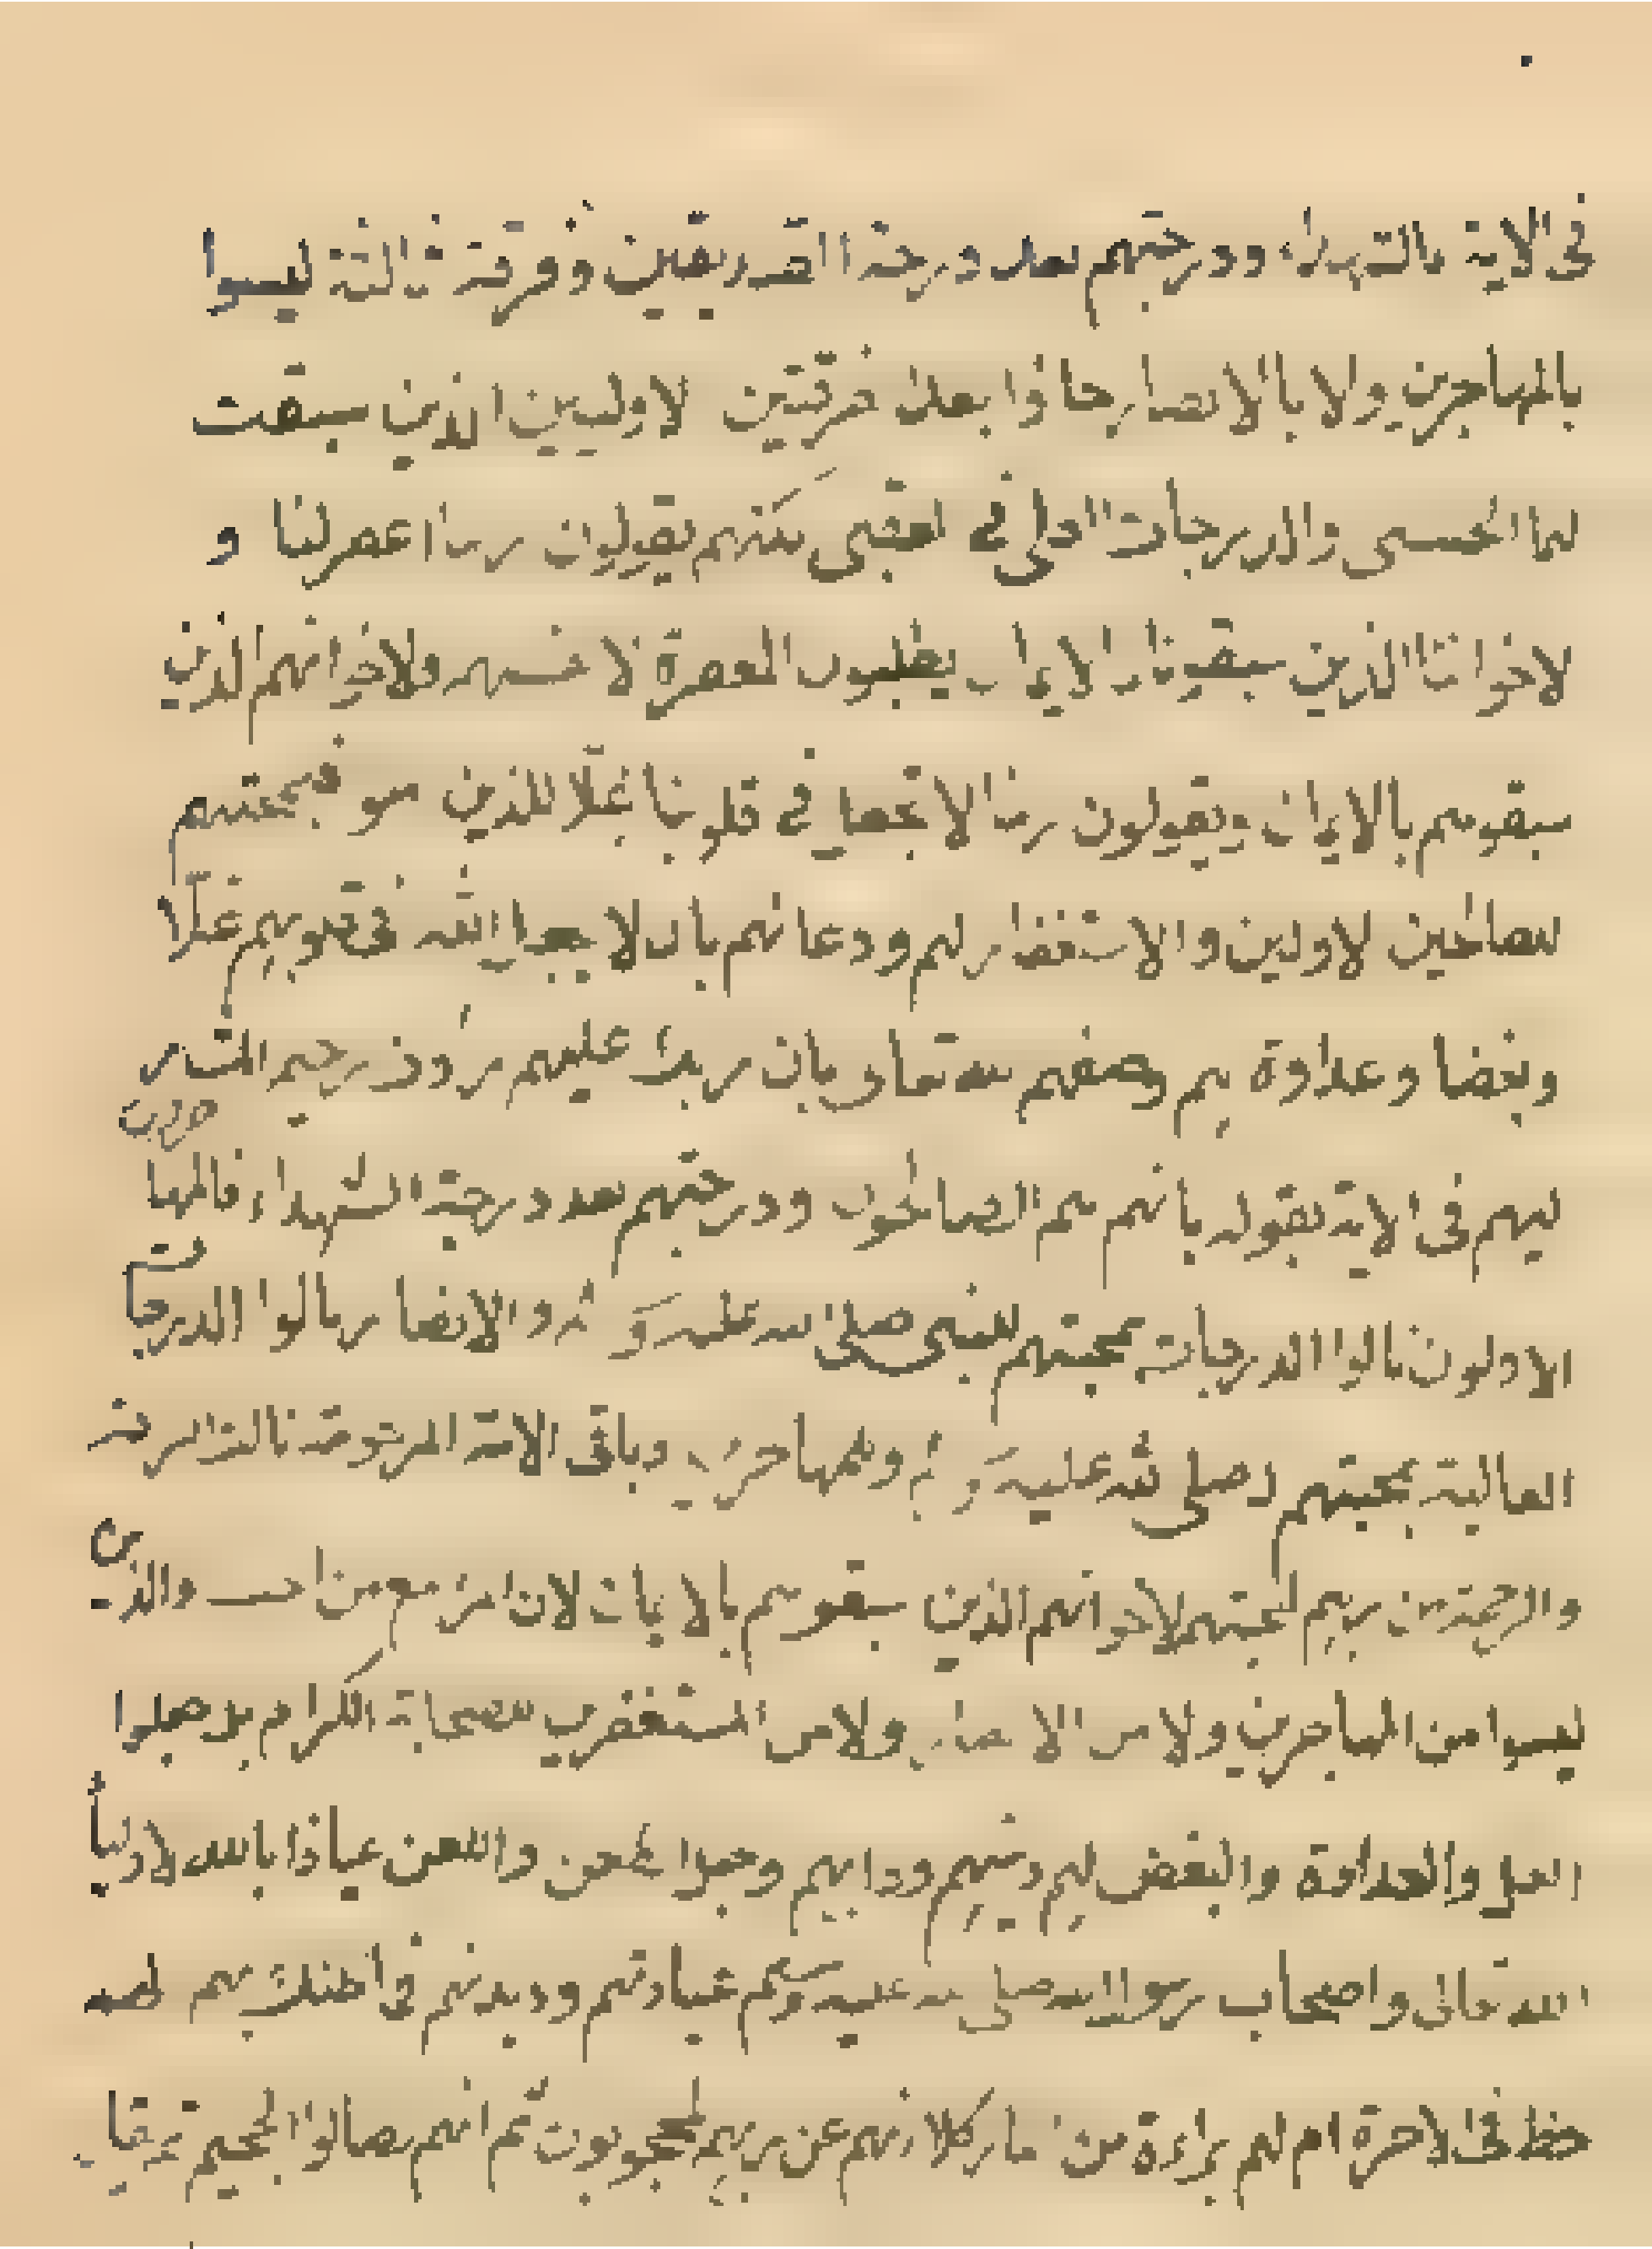 في الاية بالشهداء ودرجتهم بعد درجة الصديقين وفرقة ثالثة ليسوا
بالمهاجرين ولا بالانصار جاؤا بعد فرقتين الاولين الذين سبقت
لهما الحسنى والدرجات العلى في العقبى يقولون ربنا اغفر لنا و
لاخواننا الذين سبقونا بالايمان يطلبون المغفرة لانفسهم ولاخوانهم الذين
سبقوهم بالايمان ويقولون ربنا لا تجعل في قلوبنا غلا للذين امنوا فمحبتهم
للصالحين الاولين والاستغفار لهم ودعائهم بان لا يجعل الله في قلوبهم غلا
وبغضا وعداوة بهم وصفهم الله تعالى بان ربك عليهم رؤف رحيم المشار
اليهم في الاية بقوله بانهم هم الصالحون ودرجتهم بعد درجة الشهداء فالمهاجرون
الاولون نالوا الدرجات بمحبتهم للنبي صلى الله عليه وسلم والانصار نالوا الدرجات
العالية بمحبتهم له صلى الله عليه وسلم وللمهاجرين وباقي الامة المرحومة نالت الرأفة
والرحمة من ربهم لمحبتهم لاخوانهم الذين سبقوهم بالايمان لان المرء مع من احب والذين
ليسوا من المهاجرين ولا من الانصار ولا من المستغفرين للصحابة الكرام بل جعلوا
الغل والعداوة والبغض لهم دينهم ودابهم وجعلوا الطعن واللعن عياذا بالله لاولياء
الله تعالى واصحاب رسول الله صلى الله عليه وسلم عبادتهم وديدنهم فما ظنك بهم الهم
حظ في الاخرة ام لهم براءة من النار كلا انهم عن ربهم لمحجوبون ثم انهم لصالوا الجحيم ثم يقال